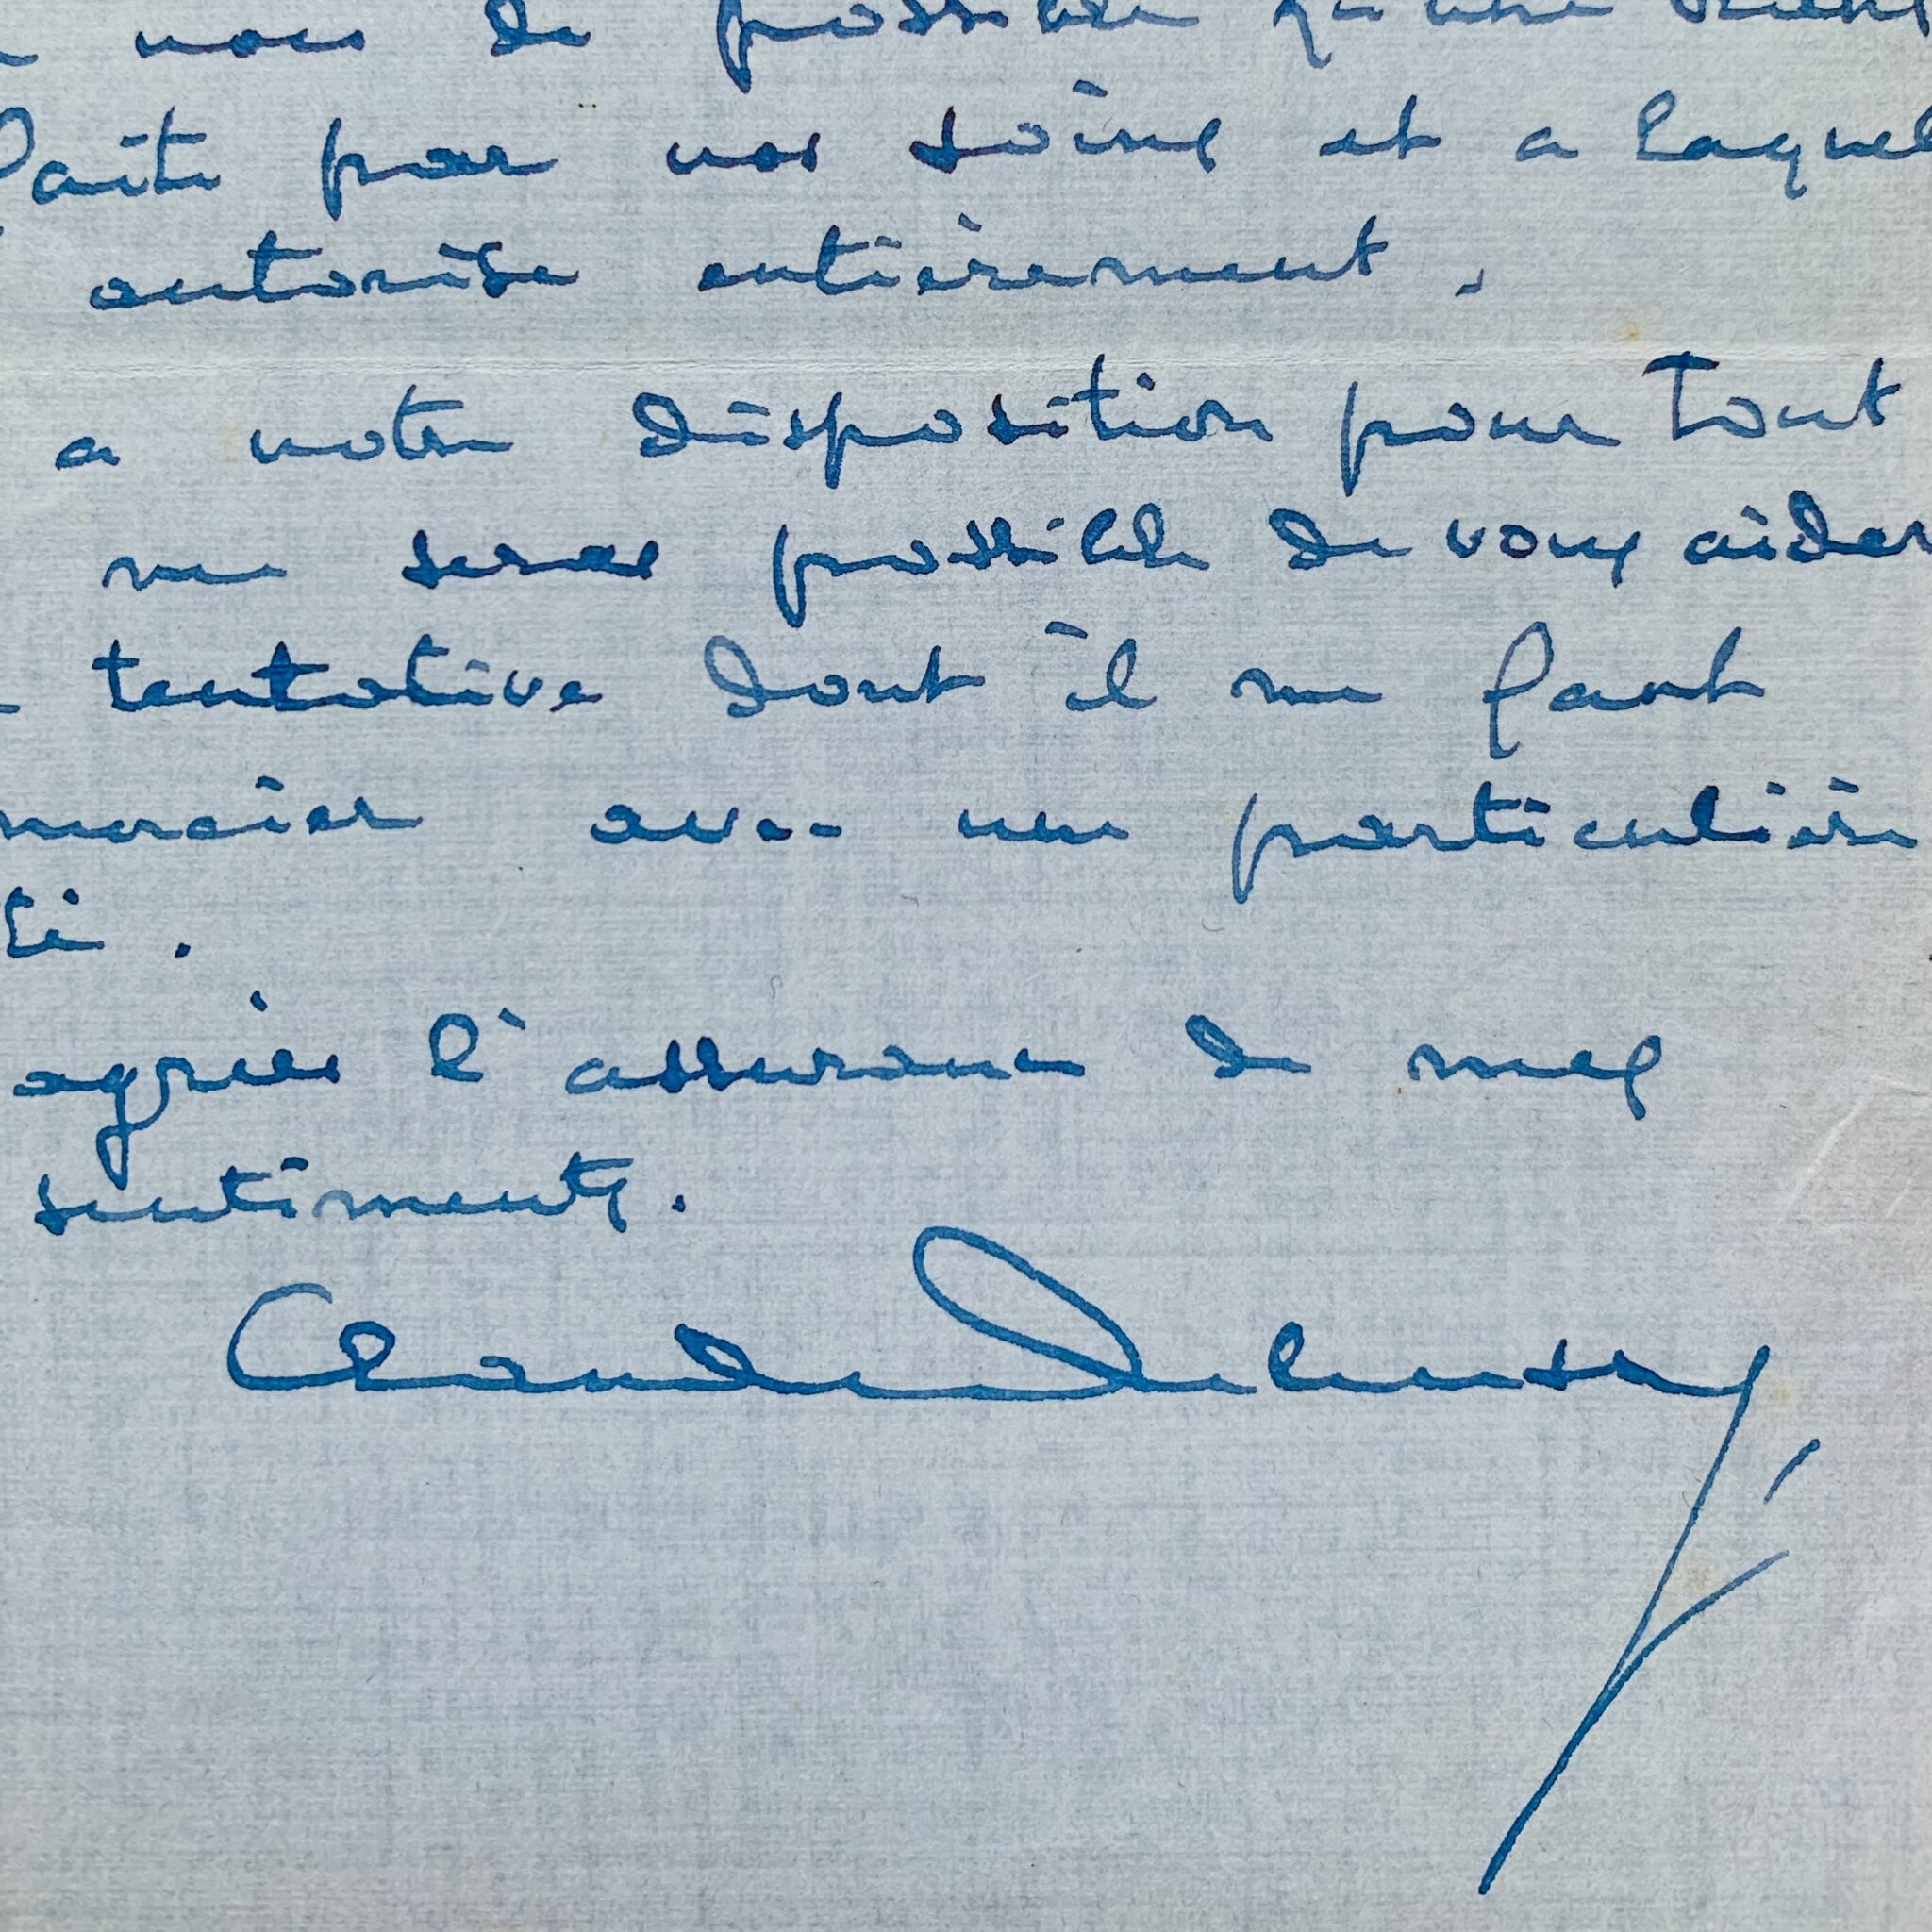 vois de possible qu'une
faite par vos soins et a laquel
autorise entièrement.
a votre disposition pour tout
me seras possible de vous aider
tentative dont il me faut
mercier avec une particulière
té.
agréer l'assurance de mes
sentiments.
Claude Debussy